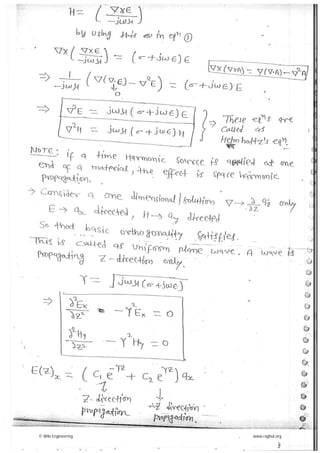 H = ( ∇×E / -jωμ )
by using this eqn in eqn ①
∇×( ∇×E / -jωμ ) = (σ+jωε)E
∇×(∇×A) = ∇(∇·A) - ∇²A
⇒ 1/-jωμ (∇(∇·E) - ∇²E) = (σ+jωε)E
↓
0
⇒ ∇²E = jωμ(σ+jωε)E
∇²H = jωμ(σ+jωε)H
⇒ These eqns are called as Helmholtz's eqn.
NOTE: if a time Harmonic source is applied at one
end of a material, the effect is space harmonic
propagation.
→ Consider a one dimensional solution ∇→ ∂/∂z az only
E → ax directed, H → ay directed
So that basic orthogonality satisfies.
This is called as uniform plane wave. A wave is
propagating Z-direction only.
γ = √jωμ(σ+jωε)
⇒ ∂²Ex/∂z² - γ²Ex = 0
∂²Hy/∂z² - γ²Hy = 0
E(z)x = ( C₁ e^-γz + C₂ e^γz ) ax
Z-direction propagation
-Z direction propagation.
www.raghul.org